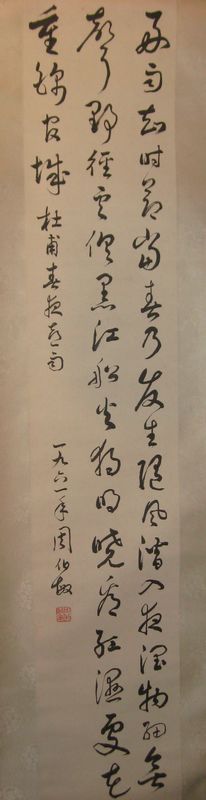 好雨知时节当春乃发生随风潜入夜润物细无
声野径云俱黑江船火独明晓看红湿处花
重锦官城 杜甫春夜喜雨 一九六一年 周伯敏